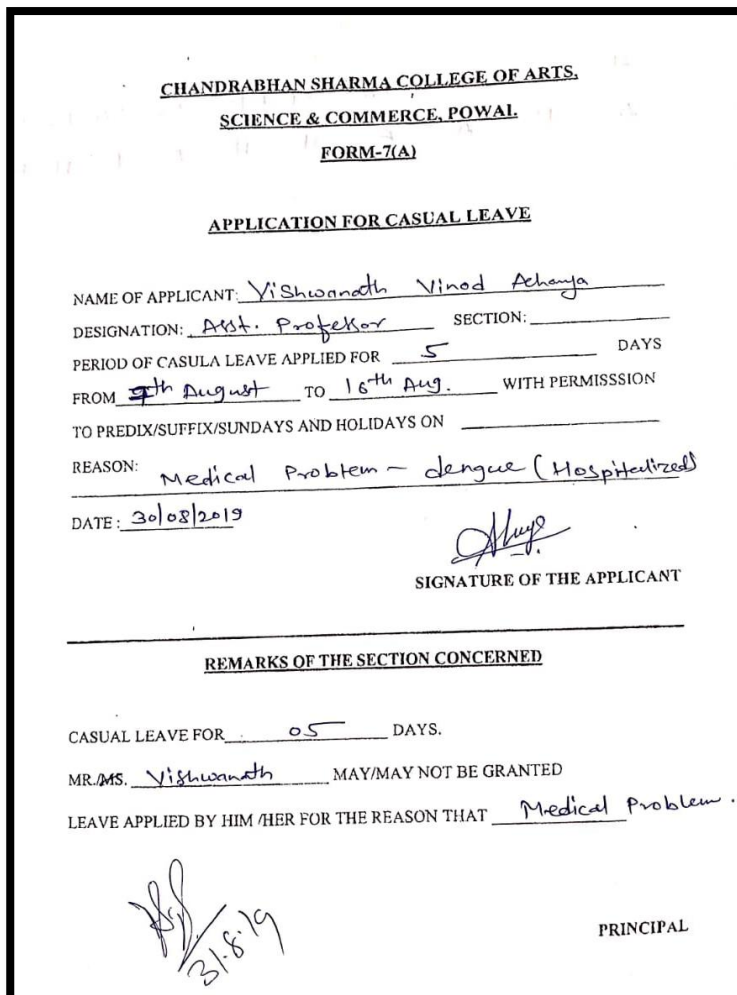 CHANDRABHAN SHARMA COLLEGE OF ARTS,
SCIENCE & COMMERCE, POWAI.
FORM-7(A)
APPLICATION FOR CASUAL LEAVE
NAME OF APPLICANT: Vishwanath Vinod Acharya
DESIGNATION: Asst. Professor SECTION:
PERIOD OF CASULA LEAVE APPLIED FOR 5 DAYS
FROM 9th August TO 16th Aug. WITH PERMISSSION
TO PREDIX/SUFFIX/SUNDAYS AND HOLIDAYS ON
REASON: Medical Problem - dengue (Hospitalized)
DATE : 30/08/2019
SIGNATURE OF THE APPLICANT
REMARKS OF THE SECTION CONCERNED
CASUAL LEAVE FOR 05 DAYS.
MR./MS. Vishwanath MAY/MAY NOT BE GRANTED
LEAVE APPLIED BY HIM /HER FOR THE REASON THAT Medical Problem.
31.8.19
PRINCIPAL